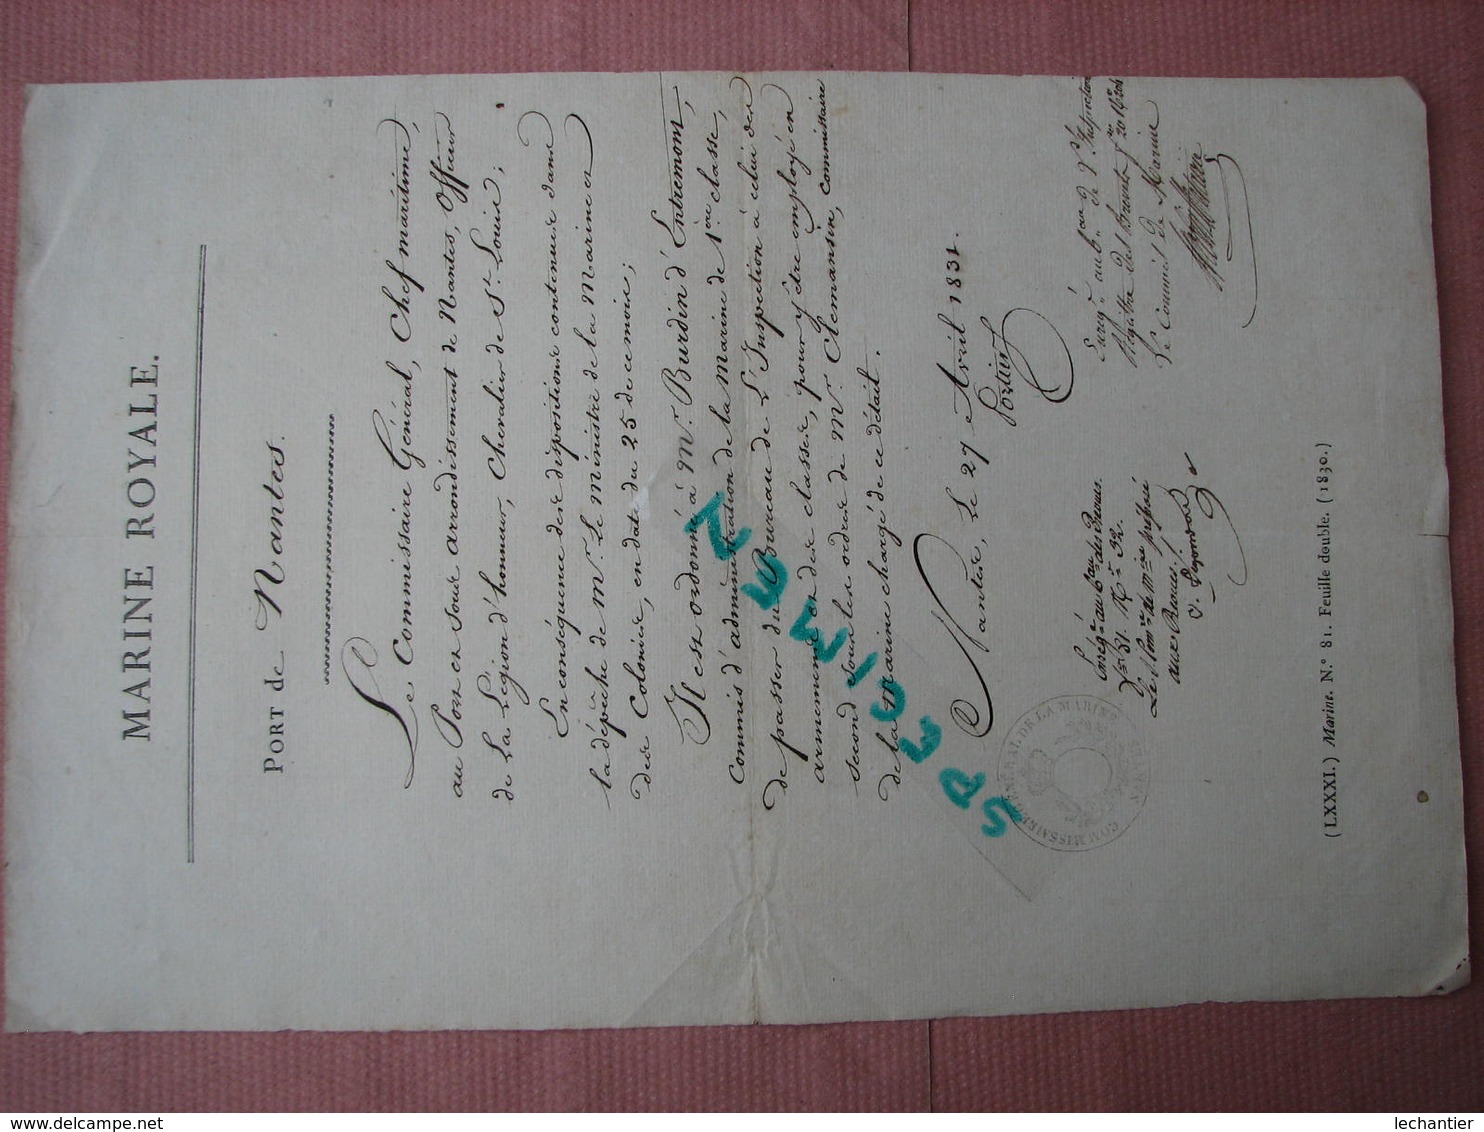 MARINE ROYALE.
PORT de Nantes.
Le Commissaire Général, Chef maritime,
au Port et sous arrondissement de Nantes, Officier
de la Légion d'honneur, Chevalier de St. Louis;
En conséquence des dispositions contenues dans
la dépêche de Mr. le ministre de la Marine et
des Colonies, en date du 25 de ce mois;
Il est ordonné à Mr. Burdin d'Entremont,
Commis d'administration de la marine de 1ère classe,
de passer du Bureau de l'Inspection à celui des
armements et des classes, pour y être employé en
second sous les ordres de Mr. Clemansin, commissaire
de la marine chargé de ce détail.
Nantes, le 27 Avril 1831.
Portier
COMMISSAIRE GÉNÉRAL DE LA MARINE
Enreg. au Bau. des Revues
Vo. 31. No. 32.
Le Comre. de Mne. préposé
aux Revues.
Enreg. au bau. de l'Inspection
Registre des Brevets fo. 20
Le Commis de Marine
(LXXXI.) Marine. N.° 81. Feuille double. (1830.)
SPECIMEN
delcampe.net
lechantier